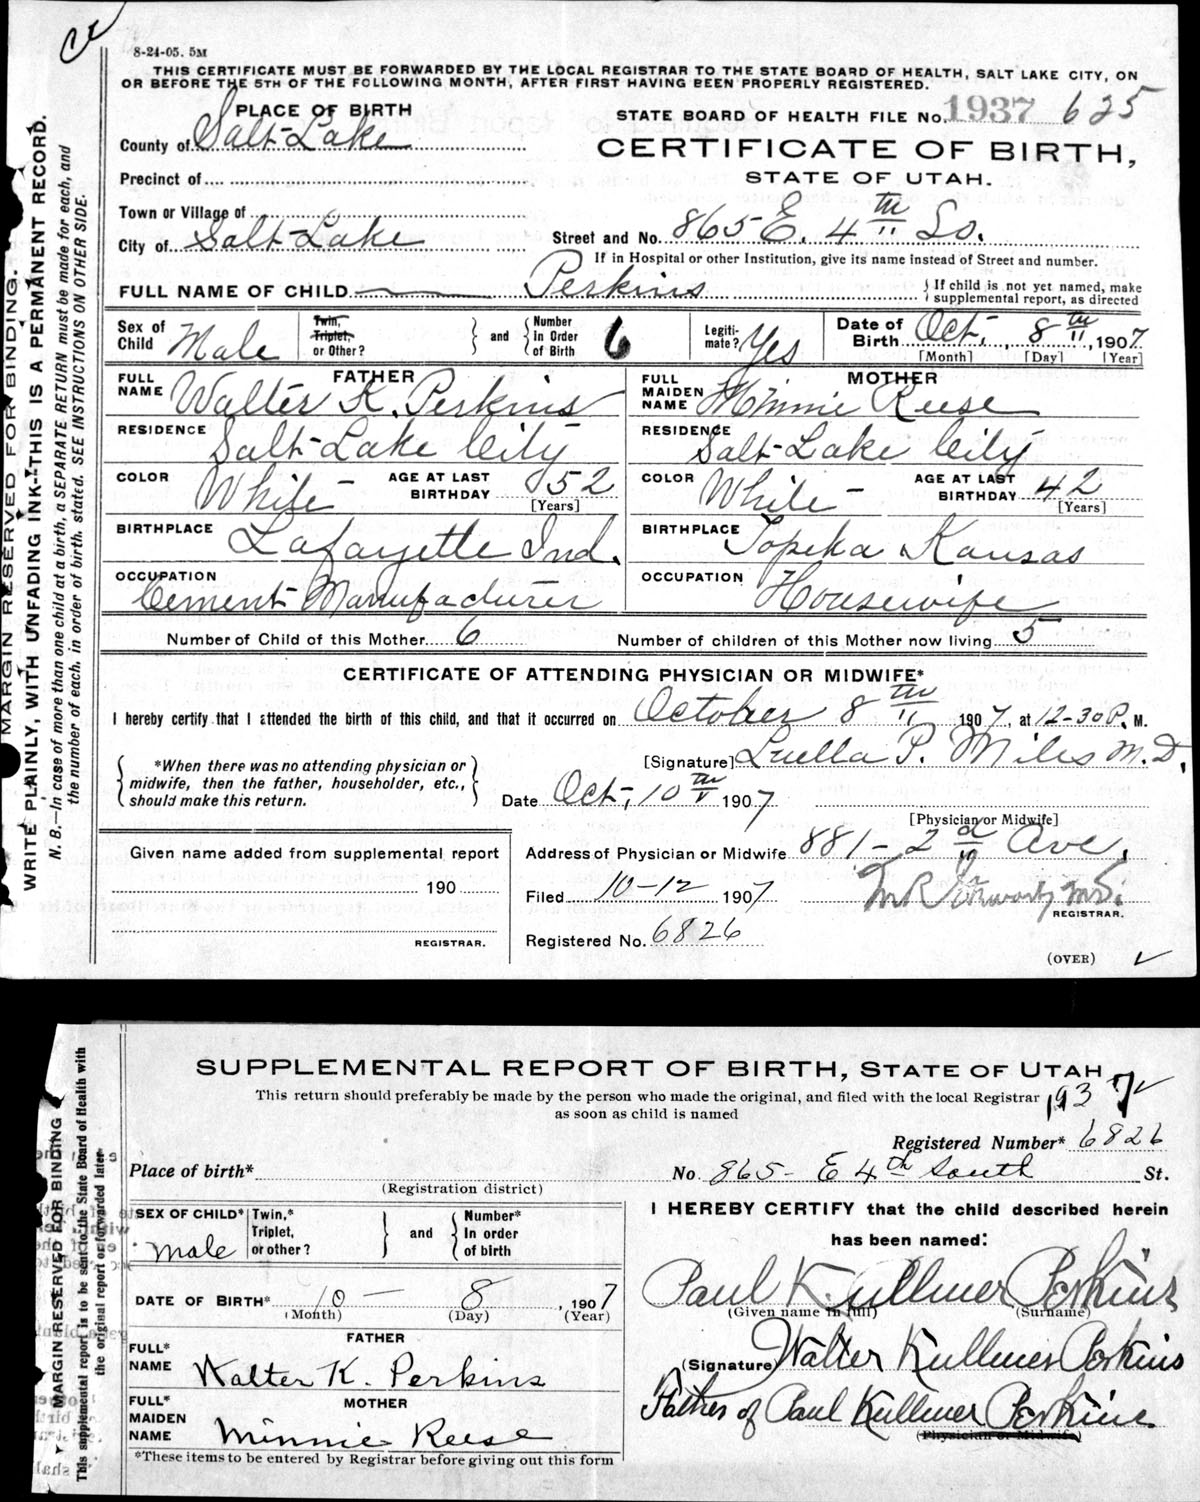 Ce
8-24-05. 5M
THIS CERTIFICATE MUST BE FORWARDED BY THE LOCAL REGISTRAR TO THE STATE BOARD OF HEALTH, SALT LAKE CITY, ON
OR BEFORE THE 5TH OF THE FOLLOWING MONTH, AFTER FIRST HAVING BEEN PROPERLY REGISTERED.
MARGIN RESERVED FOR BINDING.
WRITE PLAINLY, WITH UNFADING INK—THIS IS A PERMANENT RECORD.
N. B.—In case of more than one child at a birth, a SEPARATE RETURN must be made for each, and
the number of each, in order of birth, stated. SEE INSTRUCTIONS ON OTHER SIDE.
PLACE OF BIRTH
STATE BOARD OF HEALTH FILE No. 1937 625
County of Salt Lake
CERTIFICATE OF BIRTH,
STATE OF UTAH.
Precinct of
Town or Village of
City of Salt Lake
Street and No. 865 E. 4th So.
If in Hospital or other Institution, give its name instead of Street and number.
FULL NAME OF CHILD Perkins
If child is not yet named, make
supplemental report, as directed
Sex of Child Male
Twin, Triplet, or Other?
and
Number In Order of Birth 6
Legiti-mate? Yes
Date of Birth Oct. 8th, 1907
[Month] [Day] [Year]
FATHER
FULL NAME Walter K. Perkins
MOTHER
FULL MAIDEN NAME Minnie Reese
RESIDENCE Salt Lake City
RESIDENCE Salt Lake City
COLOR White AGE AT LAST BIRTHDAY 52 [Years]
COLOR White AGE AT LAST BIRTHDAY 42 [Years]
BIRTHPLACE Lafayette Ind.
BIRTHPLACE Topeka Kansas
OCCUPATION Cement Manufacturer
OCCUPATION Housewife
Number of Child of this Mother 6
Number of children of this Mother now living 5
CERTIFICATE OF ATTENDING PHYSICIAN OR MIDWIFE*
I hereby certify that I attended the birth of this child, and that it occurred on October 8th 1907, at 12-30 P. M.
*When there was no attending physician or
midwife, then the father, householder, etc.,
should make this return.
[Signature] Luella P. Miles M.D.
Date Oct. 10th 1907
[Physician or Midwife]
Given name added from supplemental report
190
REGISTRAR.
Address of Physician or Midwife 881 - 2nd Ave.
Filed 10-12 1907
REGISTRAR.
Registered No. 6826
(OVER)
MARGIN RESERVED FOR BINDING
This supplemental report is to be sent to the State Board of Health with
the original report or forwarded later
SUPPLEMENTAL REPORT OF BIRTH, STATE OF UTAH
This return should preferably be made by the person who made the original, and filed with the local Registrar
as soon as child is named
1937
Registered Number* 6826
Place of birth*
(Registration district)
No. 865 - E 4th South St.
SEX OF CHILD* male
Twin,* Triplet, or other?
and
Number* In order of birth
I HEREBY CERTIFY that the child described herein
has been named:
Paul Kullmer Perkins
(Given name in full) (Surname)
DATE OF BIRTH* 10 - 8, 1907
(Month) (Day) (Year)
FATHER
FULL* NAME Walter K. Perkins
(Signature) Walter Kullmer Perkins
Father of Paul Kullmer Perkins
(Physician or Midwife)
MOTHER
FULL* MAIDEN NAME Minnie Reese
*These items to be entered by Registrar before giving out this form